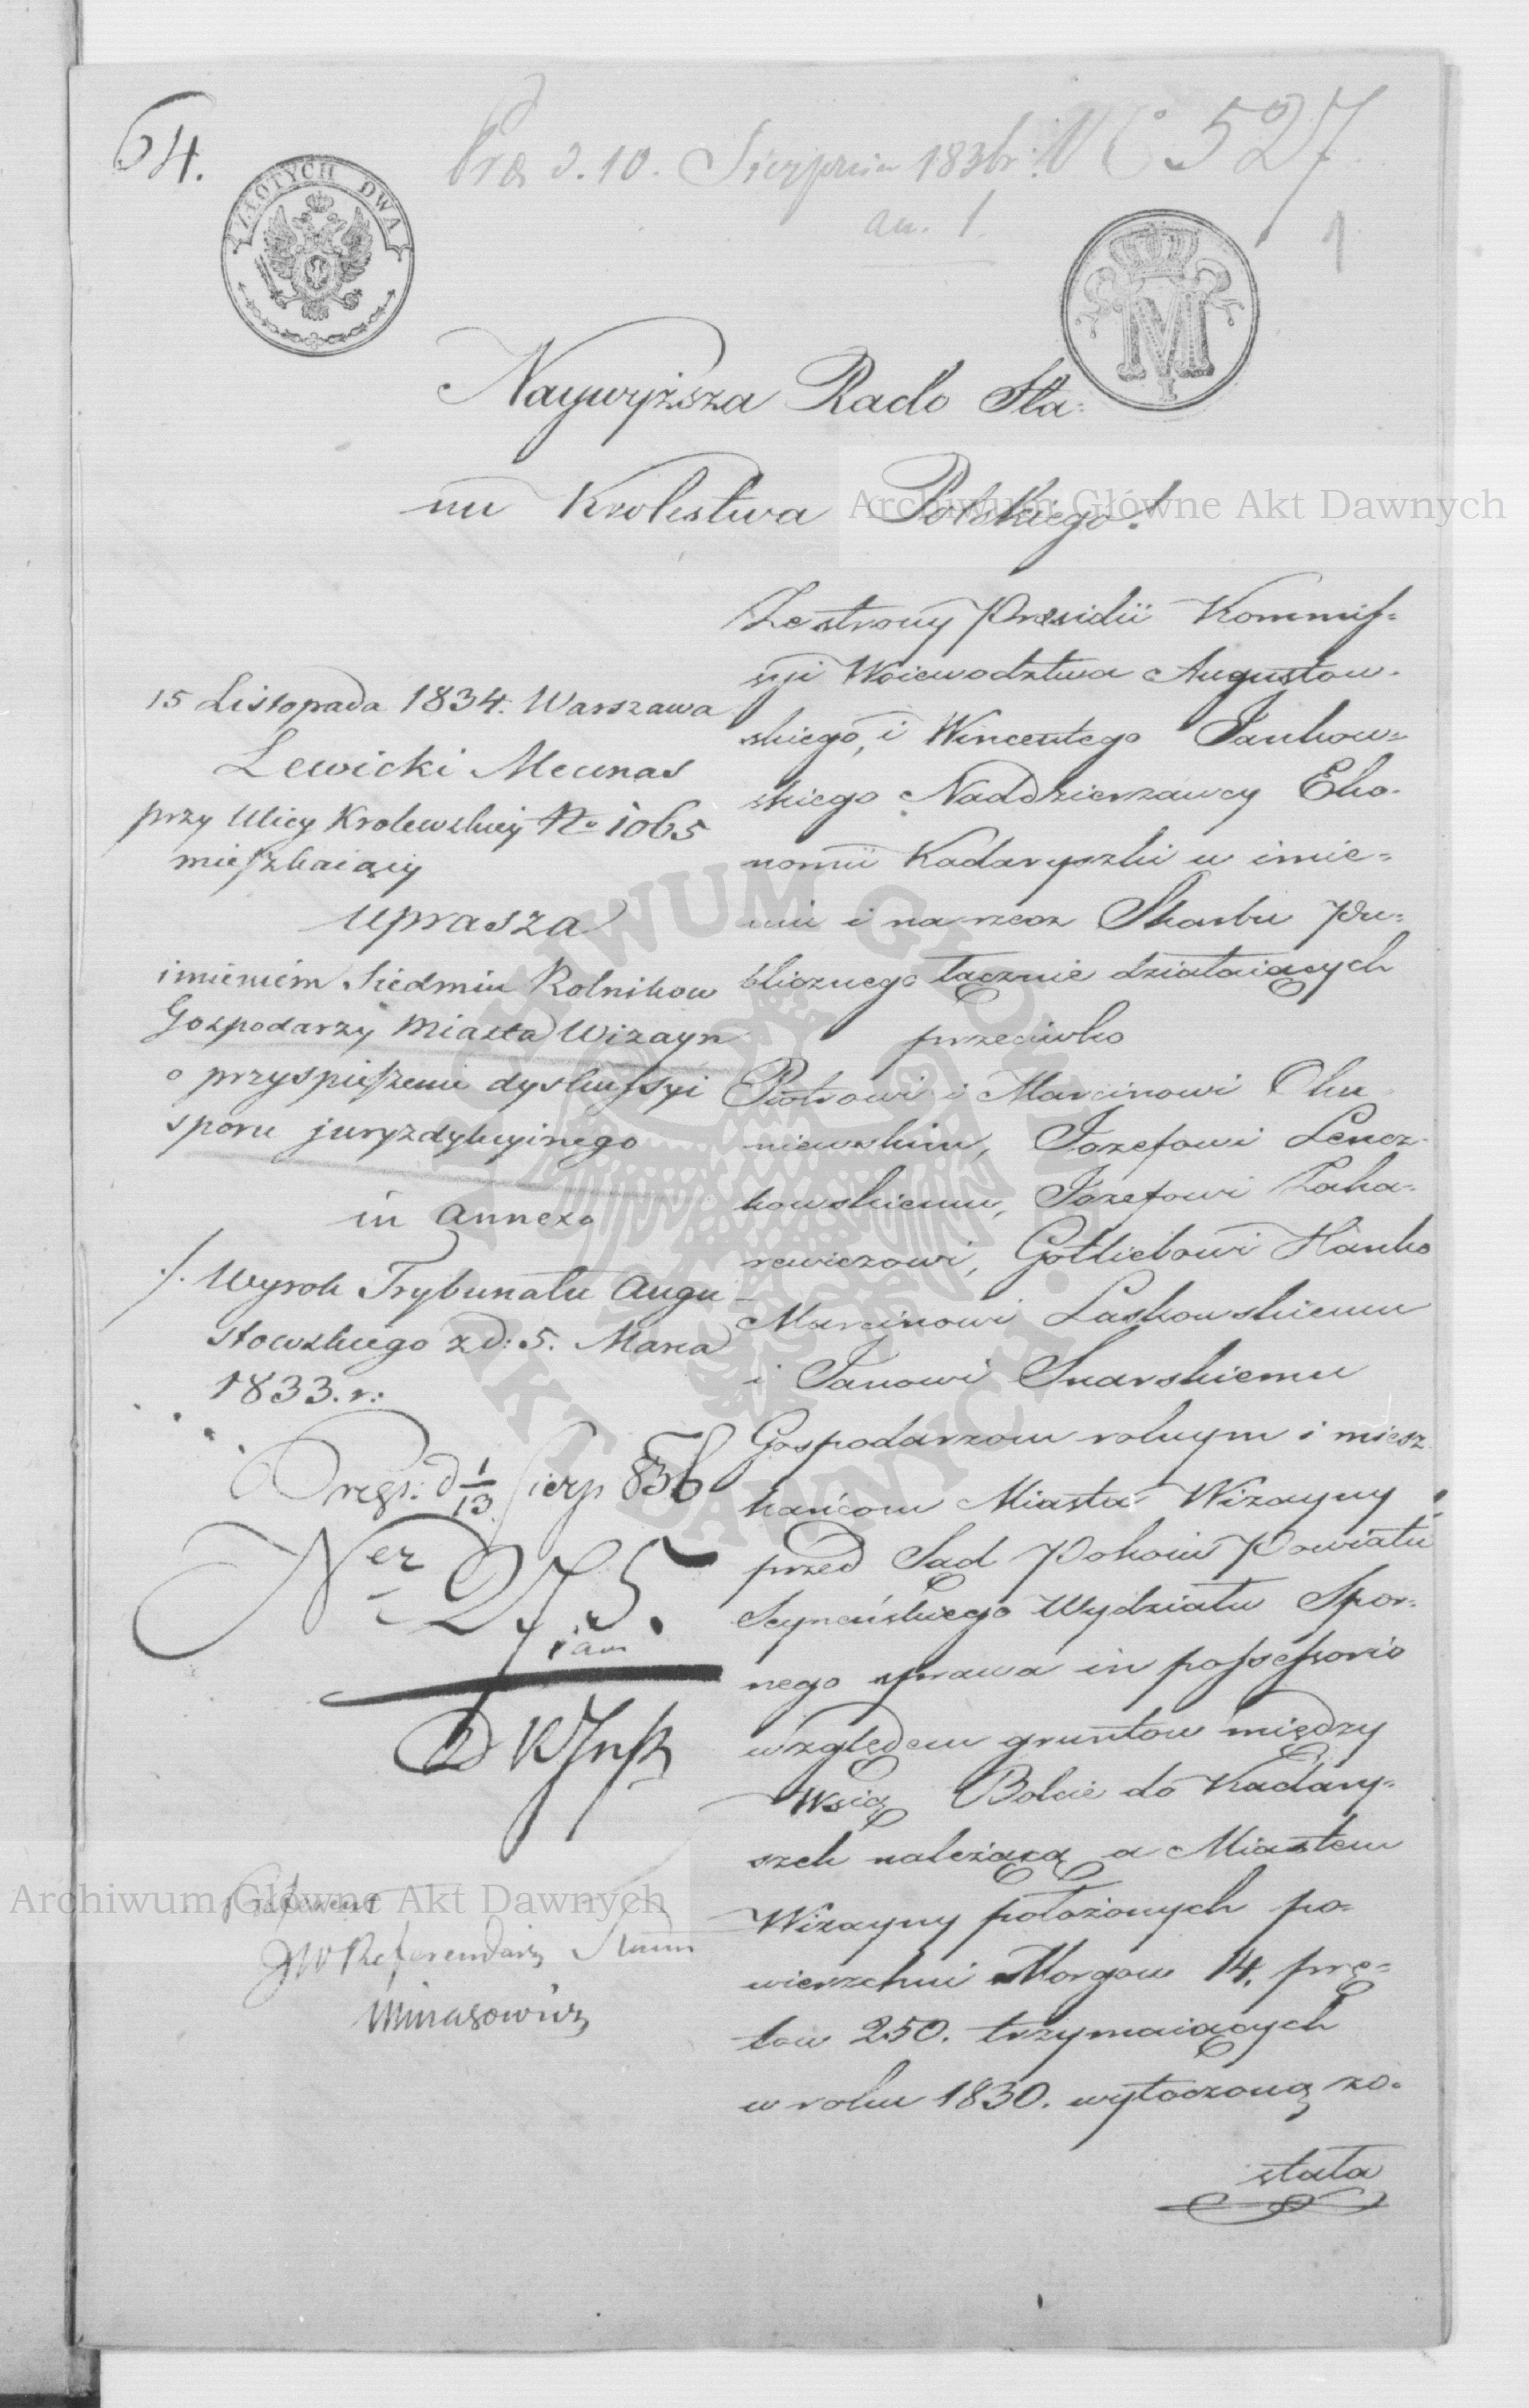 64.
Præs d. 10. Sierpnia 1836 r: N C 527
an. 1.
1
ZŁOTYCH DWA
M
I
Naywyższa Rado Sta=
nu Krolestwa Polskiego!
15 Listopada 1834. Warszawa
Lewicki Mecenas
przy Ulicy Krolewskiey No 1065
mieszkaiący
uprasza
imieniem Siedmiu Rolnikow
Gospodarzy Miasta Wizayn
o przyspieszenie dyskussyi
sporu juryzdykcyinego
in annexo
./. Wyrok Trybunału Augu
stowskiego z d: 5. Marca
1833. r:
d 1/13 Sierp 836
Ner 275.
Referent
JW Referendarz Stanu
Minasowicz
Ze strony Presidii Kommis=
syi Woiewodztwa Augustow-
skiego, i Wincentego Jankow=
skiego Naddzierzawcy Eko-
nomii Kadaryszki w imie=
niu i na rzecz Skarbu Pu=
blicznego łącznie działaiących
przeciwko
Piotrowi i Marcinowi Oku
niewskim, Jozefowi Lencz-
kowskiemu, Jozefowi Zaka-
rewiczowi, Gottliebowi Hanko
Marcinowi Laskowskiemu
i Janowi Snarskiemu
Gospodarzom rolnym i miesz
kańcom Miasta Wizayny
przed Sąd Pokoiu Powiatu
Seyneńskiego Wydziału Spor=
nego sprawa in possessorio
względem gruntow między
Wsią Bolcie do Kadary=
szek należącą a Miastem
Wizayny położonych po-
wierzchni Morgow 14. prę=
tow 250. trzymaiących
w roku 1830. wytoczoną zo-
stała
Archiwum Główne Akt Dawnych
Archiwum Główne Akt Dawnych
ARCHIWUM GŁÓWNE AKT DAWNYCH